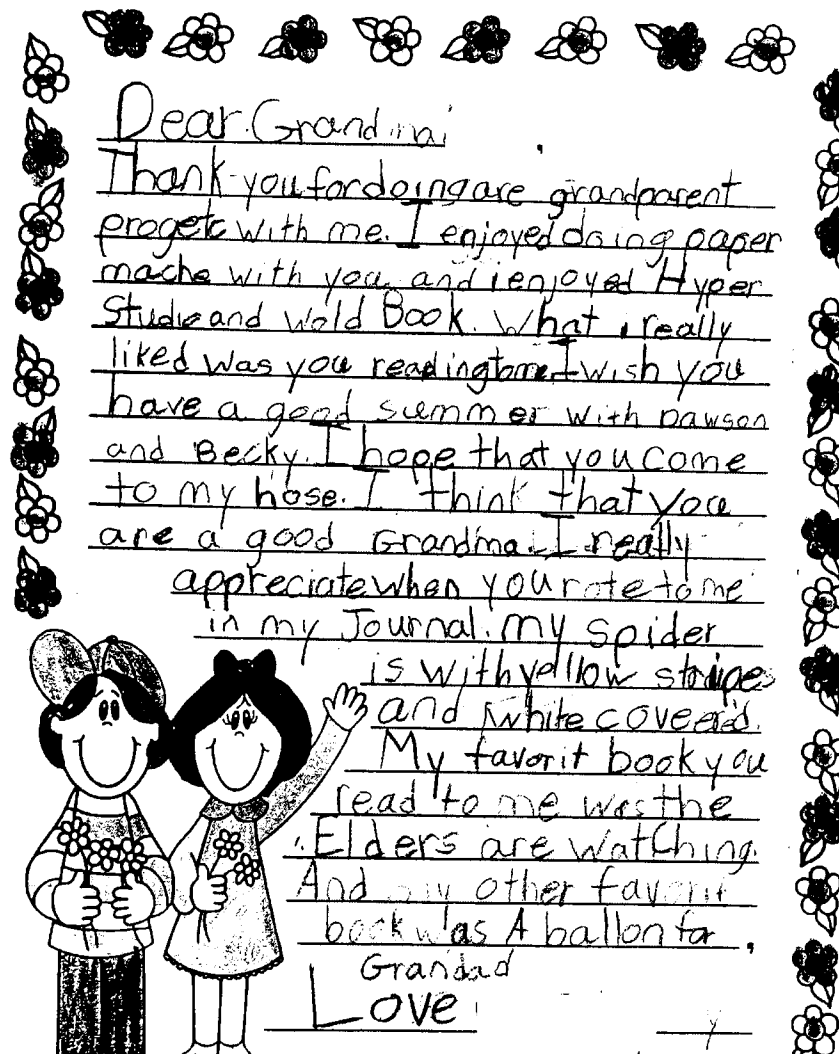 Dear Grandma
Thank you for doing are grandparent
progetc with me. I enjoyed doing paper
mache with you and i enjoyed Hyper
Studio and wold Book. What i really
liked was you reading to me. I wish you
have a good summer with Dawson
and Becky. I hope that you come
to my hose. I think that you
are a good Grandma. I really
appreciate when you rote to me
in my Journal. my spider
is with yellow stripes
and white covered.
My favorit book you
read to me was the
Elders are watching.
And my other favorit
book was A ballon for
Grandad
Love